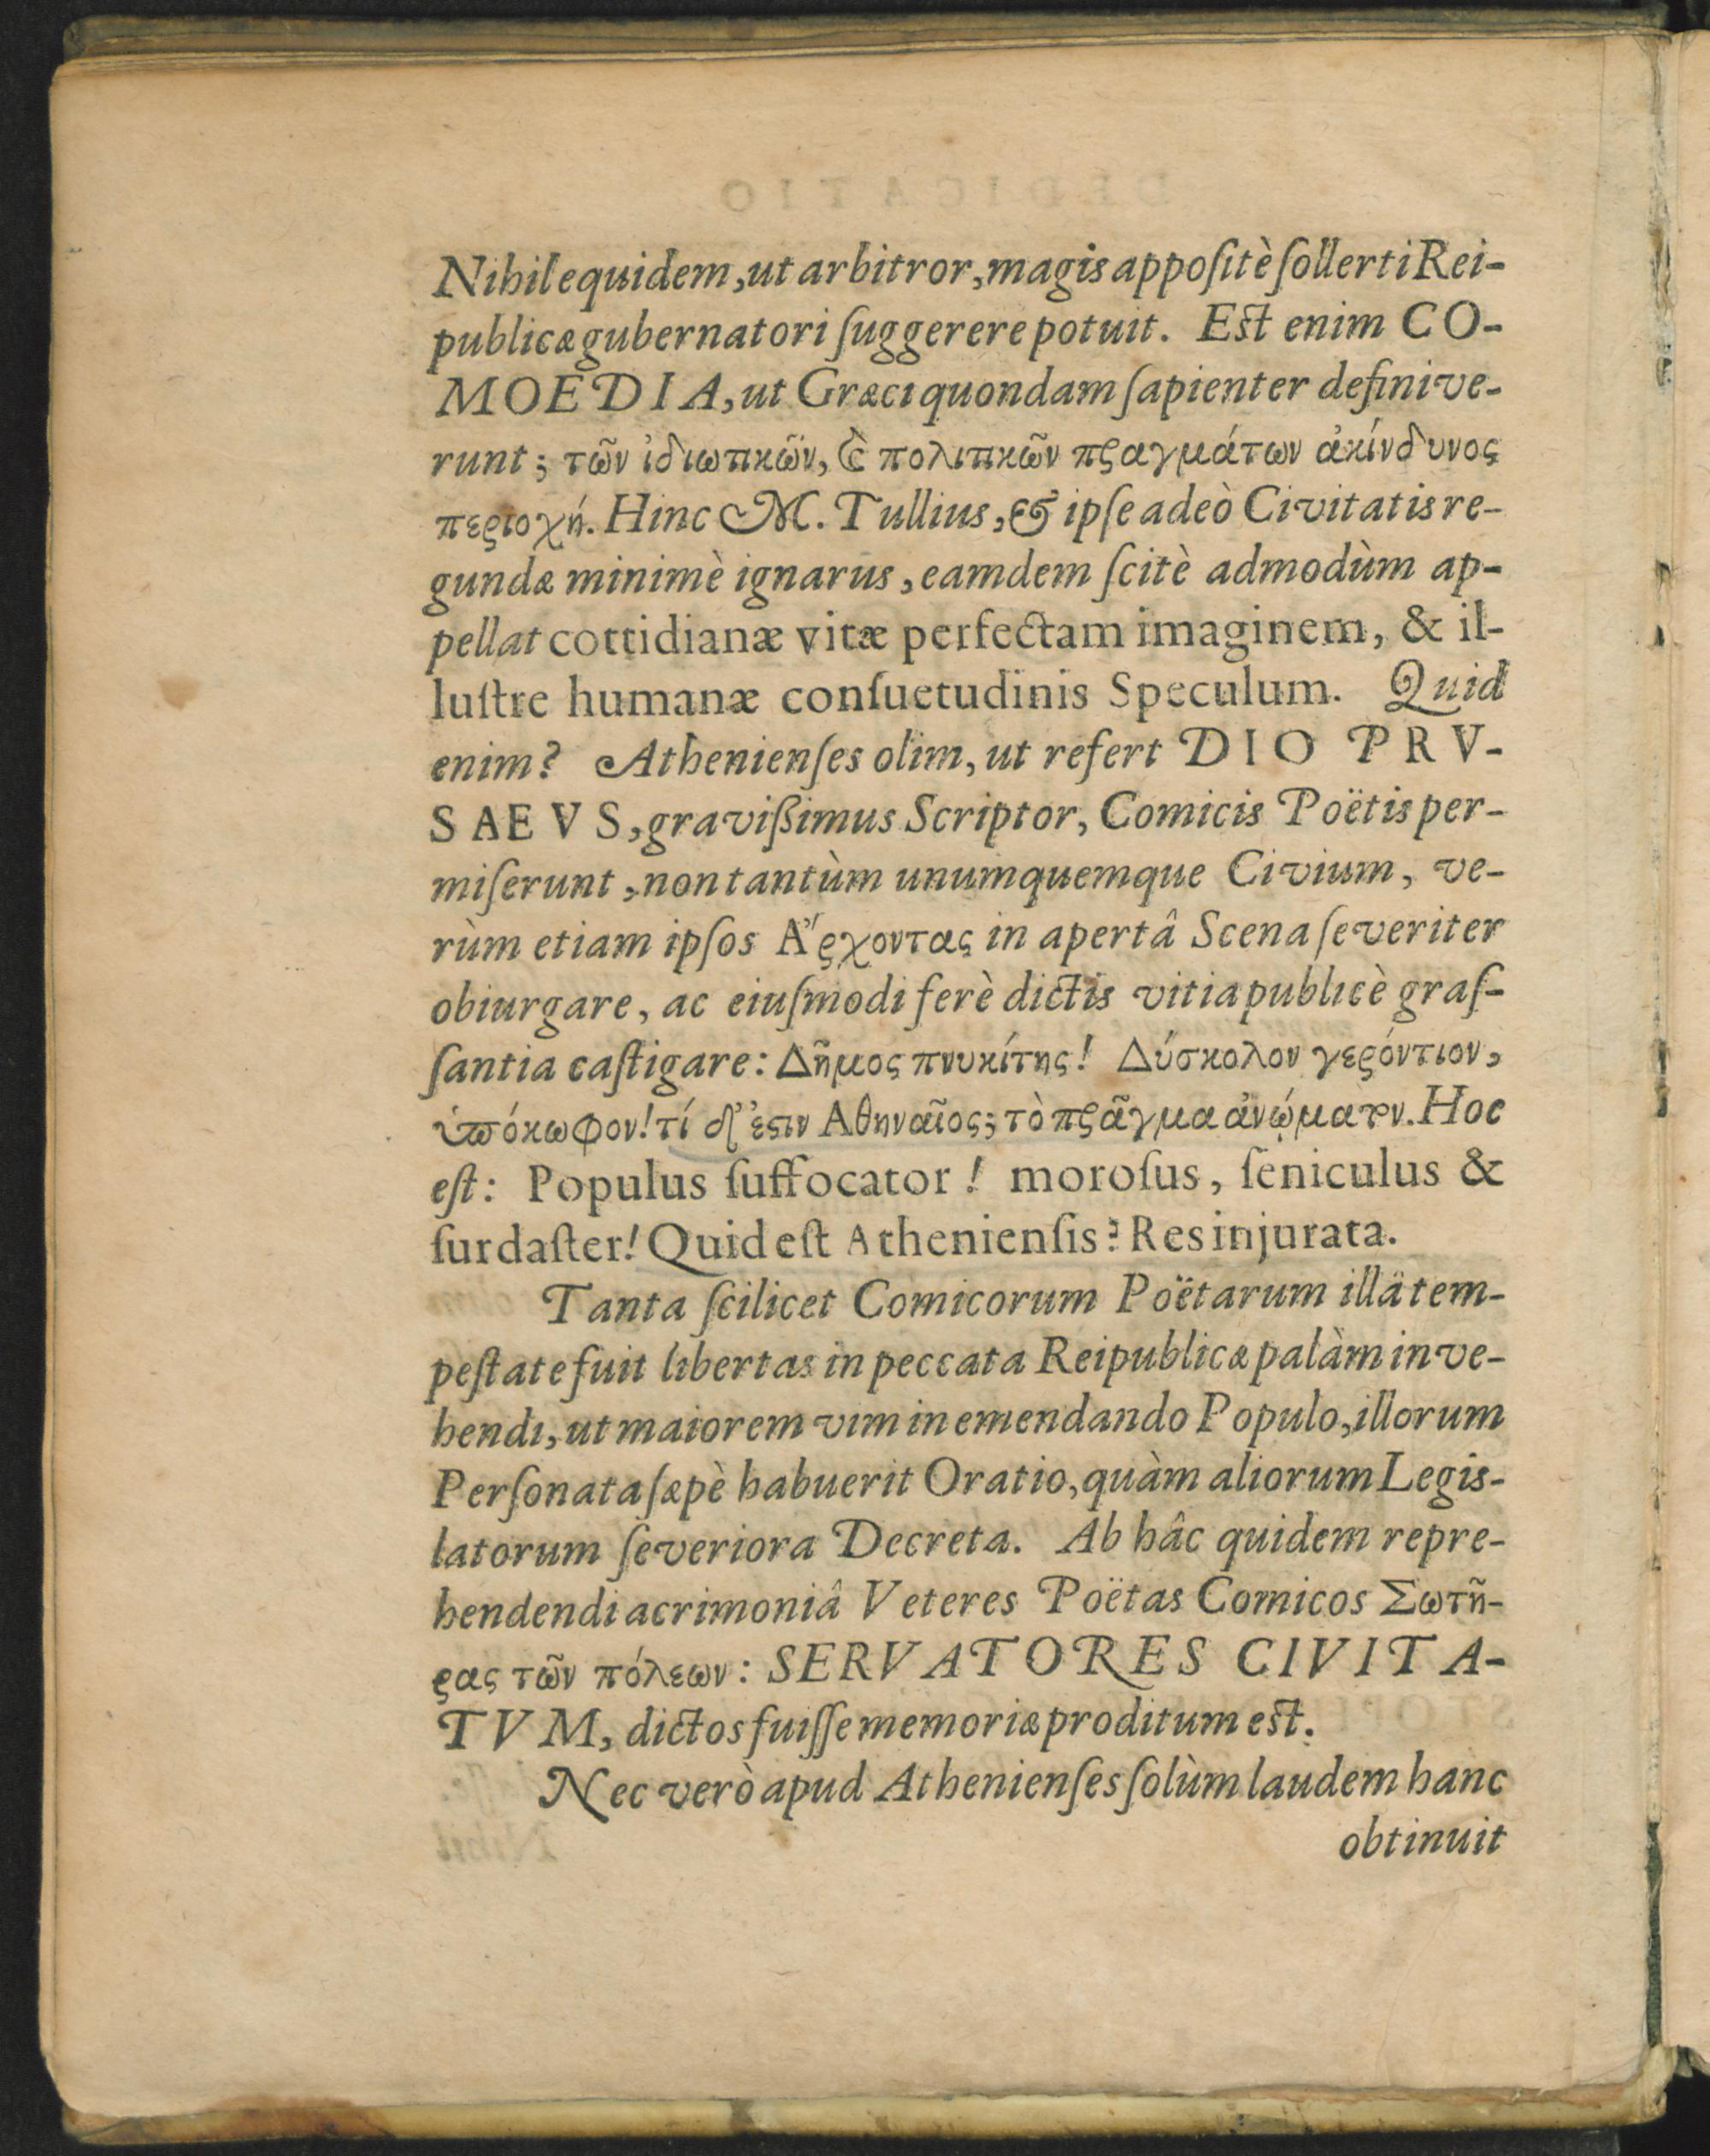 Nihil equidem, ut arbitror, magis appoſitè ſollerti Rei-
publicæ gubernatori ſuggerere potuit. Est enim CO-
MOEDIA, ut Græci quondam ſapienter definive-
runt; τῶν ἰδιωτικῶν, & πολιτικῶν πραγμάτων ἀκίνδυνος
περιοχή. Hinc M. Tullius, & ipſe adeò Civitatis re-
gundæ minimè ignarus, eamdem ſcitè admodùm ap-
pellat cottidianæ vitæ perfectam imaginem, & il-
luſtre humanæ conſuetudinis Speculum. Quid
enim? Athenienſes olim, ut refert DIO PRV-
SAEVS, graviſsimus Scriptor, Comicis Poëtis per-
miſerunt, non tantùm unumquemque Civium, ve-
rùm etiam ipſos Ἄρχοντας in apertâ Scena ſeveriter
obiurgare, ac eiuſmodi ferè dictis vitia publicè graſ-
ſantia caſtigare: Δῆμος πνυκίτης! Δύσκολον γερόντιον,
ὑπόκωφον! τί δ' ἐστιν Αθηναῖος; τὸ πρᾶγμα ἀνώματον. Hoc
eſt: Populus ſuffocator! moroſus, ſeniculus &
ſurdaſter! Quid eſt Athenienſis? Res injurata.
Tanta ſcilicet Comicorum Poëtarum illâ tem-
peſtate fuit libertas in peccata Reipublicæ palàm inve-
hendi, ut maiorem vim in emendando Populo, illorum
Perſonata ſæpè habuerit Oratio, quàm aliorum Legis-
latorum ſeveriora Decreta. Ab hâc quidem repre-
hendendi acrimoniâ Veteres Poëtas Comicos Σωτῆ-
ρας τῶν πόλεων: SERVATORES CIVITA-
TVM, dictos fuiſſe memoriæ proditum est.
Nec verò apud Athenienſes ſolùm laudem hanc
obtinuit